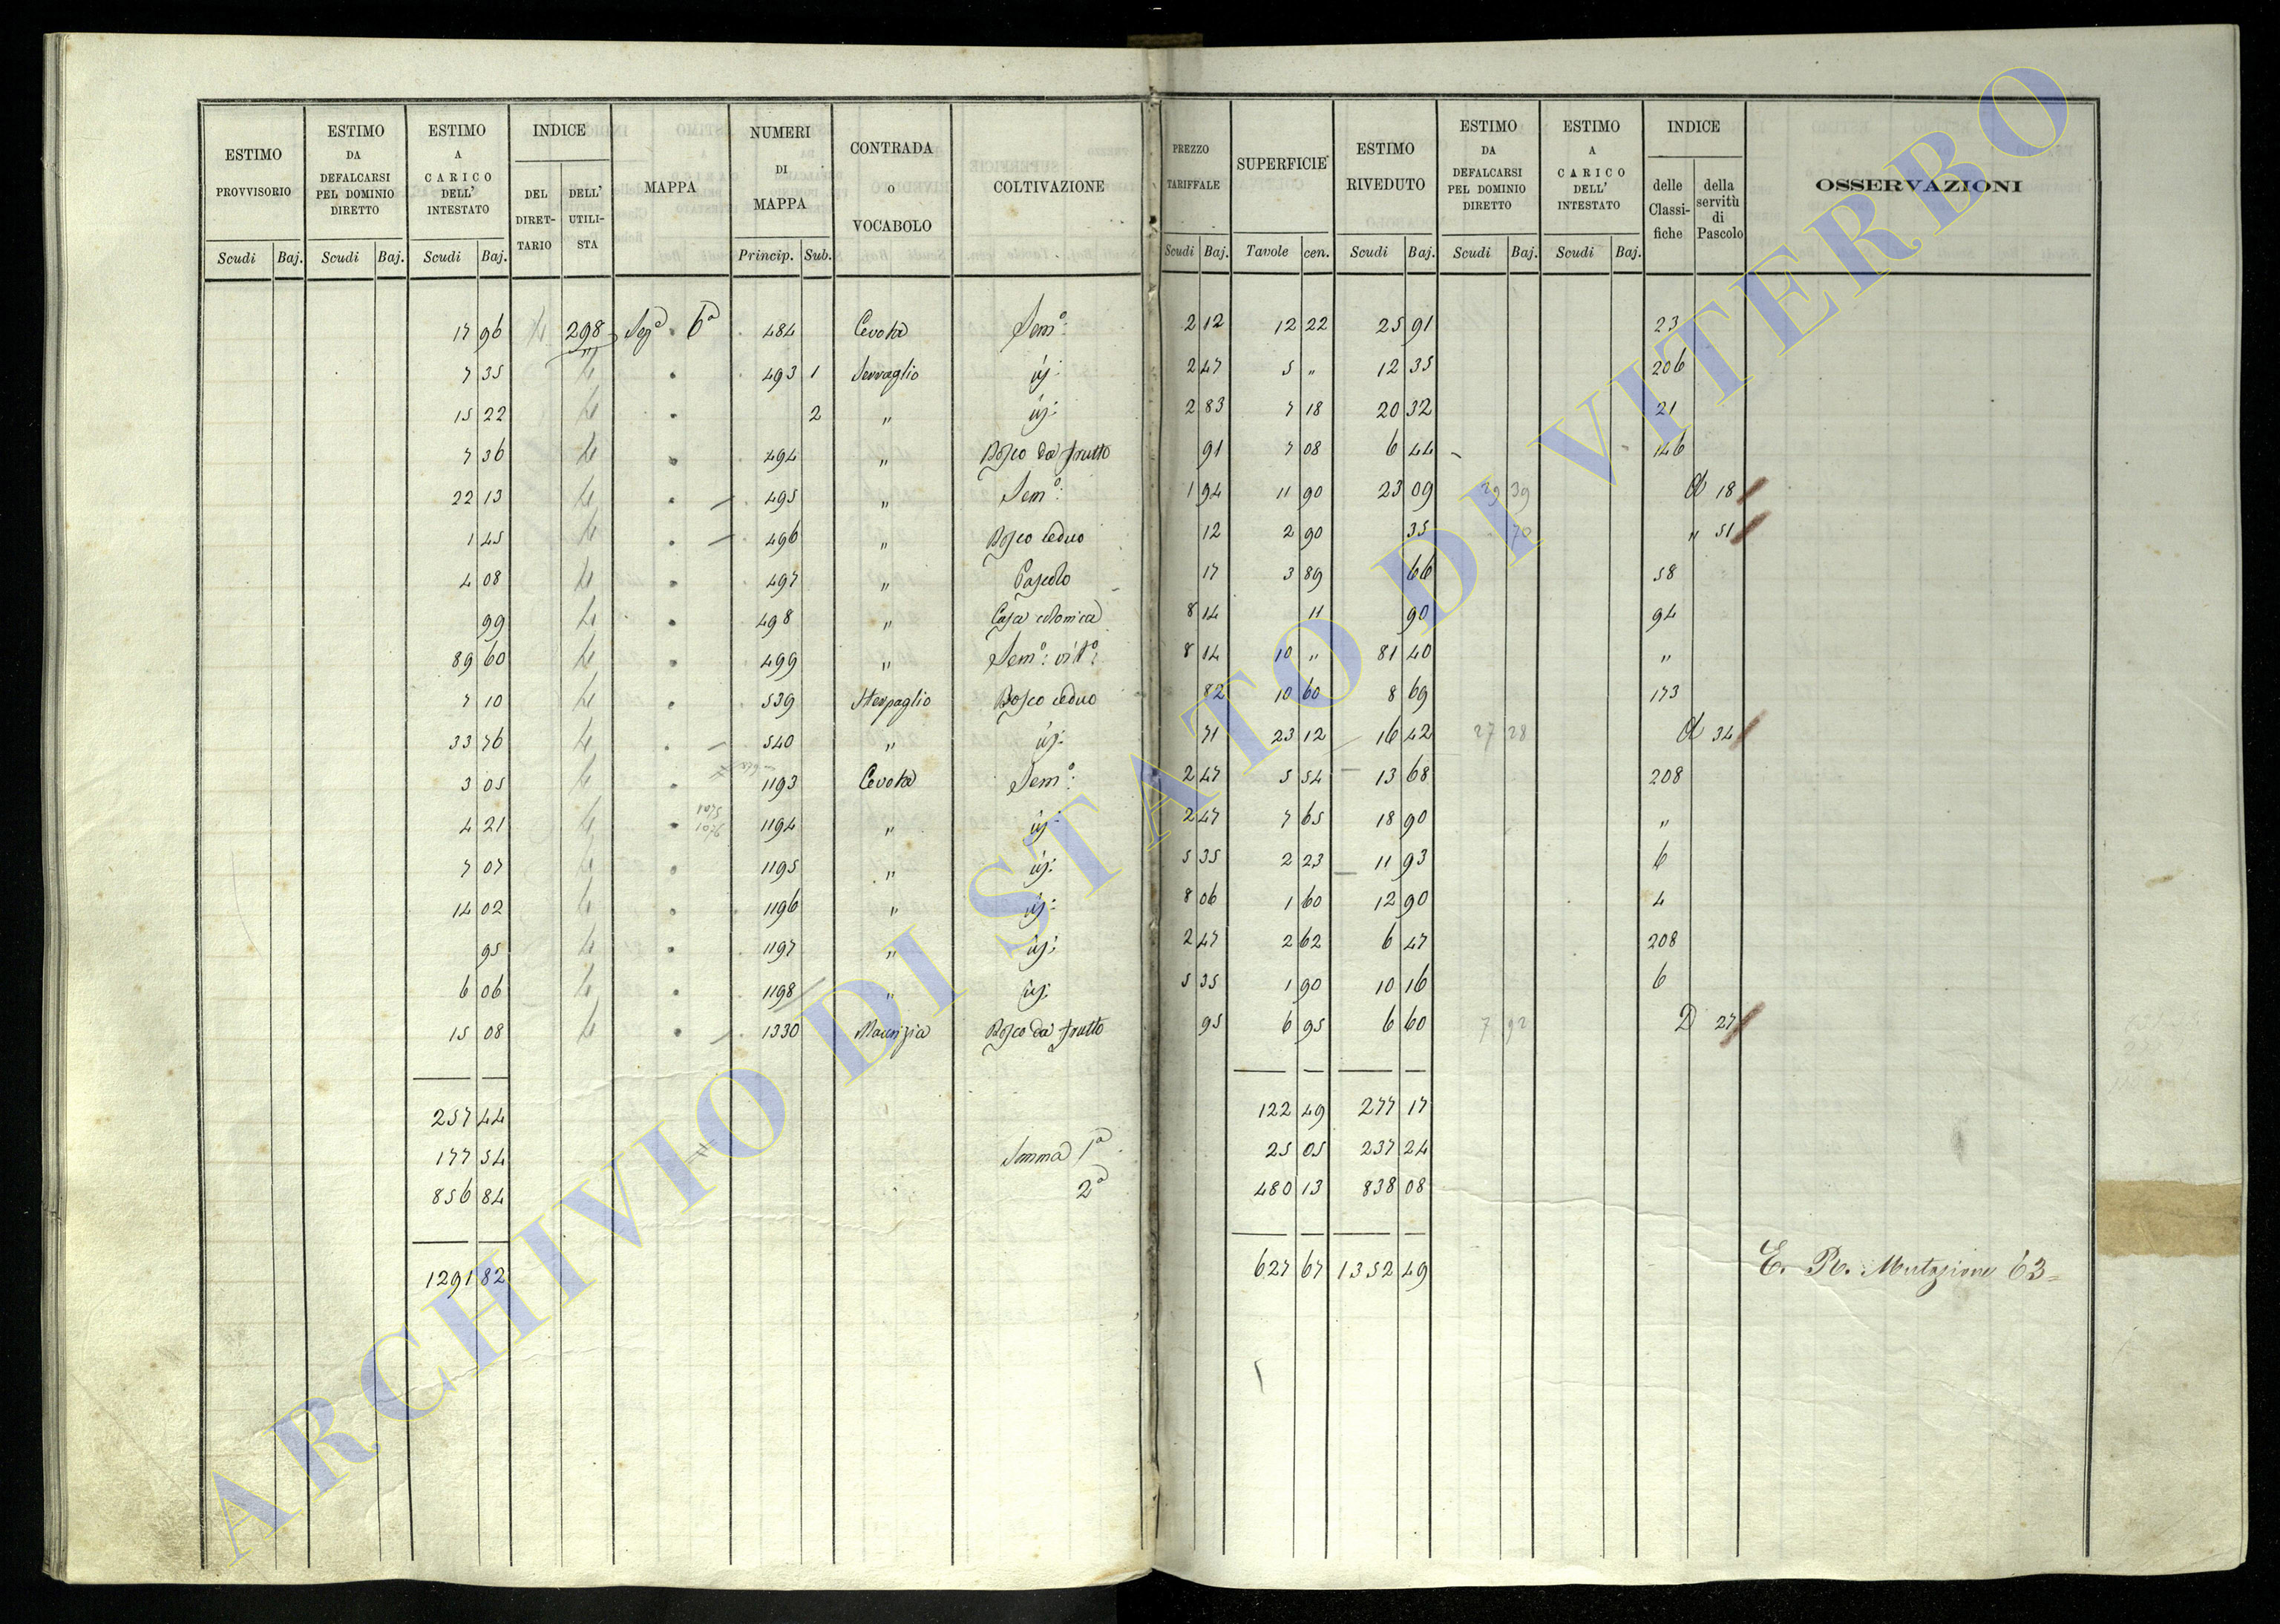 ESTIMO PROVVISORIO | ESTIMO DA DEFALCARSI PEL DOMINIO DIRETTO | ESTIMO A CARICO DELL' INTESTATO | INDICE DEL DIRET-TARIO | DELL' UTILI-STA | MAPPA | NUMERI DI MAPPA | CONTRADA o VOCABOLO | COLTIVAZIONE | PREZZO TARIFFALE | SUPERFICIE | ESTIMO RIVEDUTO | ESTIMO DA DEFALCARSI PEL DOMINIO DIRETTO | ESTIMO A CARICO DELL' INTESTATO | INDICE delle Classi-fiche | della servitù di Pascolo | OSSERVAZIONI
Scudi Baj. | Scudi Baj. | Scudi Baj. | Princip. Sub. | Scudi Baj. | Tavole cen. | Scudi Baj. | Scudi Baj. | Scudi Baj.
17 96 298 Seze 6a 484 Semo: 2 12 12 22 25 91 23
7 35 " 493 1 Serraglio id: 2 47 5 " 12 35 206
15 22 2 " id: 2 83 7 18 20 32 21
7 36 494 " Bosco da frutto 91 7 08 6 44 146
22 13 495 " Semo: 1 94 11 90 23 09 39 18
1 45 496 " Bosco ceduo 12 2 90 35 70 " 51
4 08 497 " Pascolo 17 3 89 66 58
99 498 " Casa colonica 8 14 11 90 94
89 60 499 " Semo: vito: 8 14 10 " 81 40 "
7 10 539 Sterpaglio Bosco ceduo 82 10 60 8 69 173
33 76 540 " id: 71 23 12 16 42 27 28 34
3 05 1193 Semo: 2 47 5 54 13 68 208
4 21 1194 " id: 2 47 7 65 18 90 "
7 07 1195 " id: 5 35 2 23 11 93 6
14 02 1196 " id: 8 06 1 60 12 90 4
95 1197 " id: 2 47 2 62 6 47 208
6 06 1198 " id: 5 35 1 90 10 16 6
15 08 1330 Maurizia Bosco da frutto 95 6 95 6 60 7 92 D 27
257 44 122 49 277 17
177 54 Somma 1a 25 05 237 24
856 84 2a 480 13 838 08
1291 82 627 67 1352 49 E. R. Mutazione 63=
ARCHIVIO DI STATO DI VITERBO